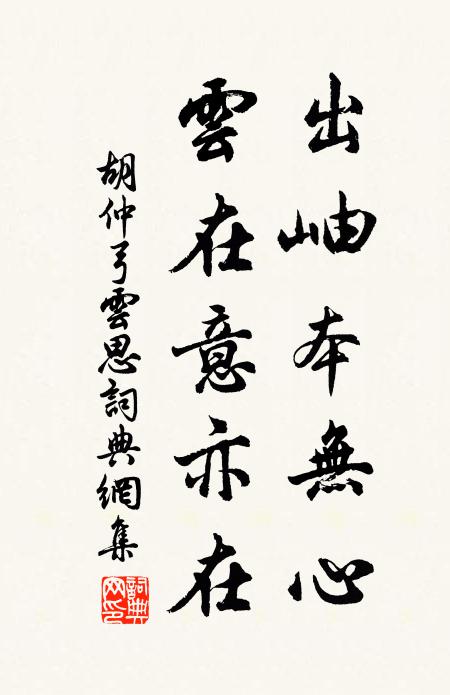 出岫本無心
雲在意亦在
胡仲弓雲思詞典網集
詞典
网印